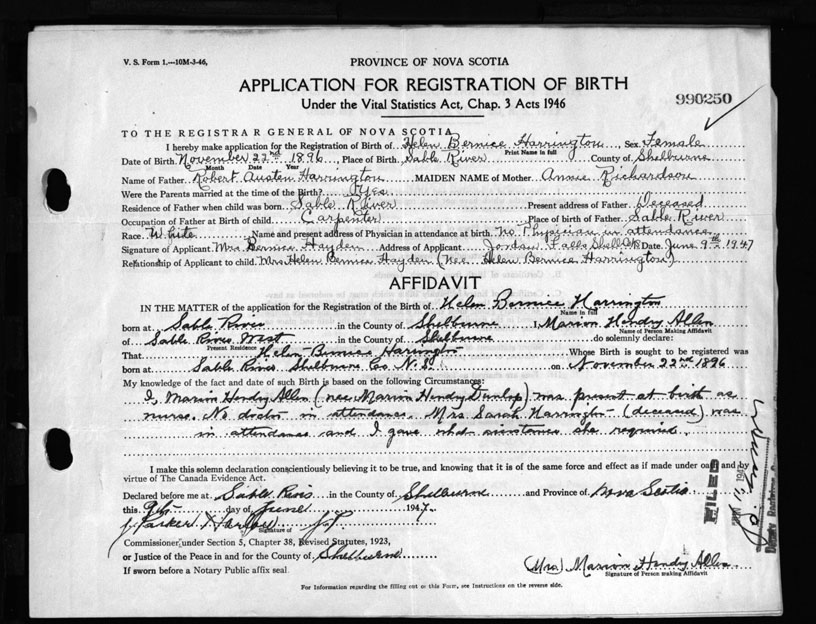 V. S. Form 1.—10M-3-46,
PROVINCE OF NOVA SCOTIA
APPLICATION FOR REGISTRATION OF BIRTH
Under the Vital Statistics Act, Chap. 3 Acts 1946
990250
TO THE REGISTRAR GENERAL OF NOVA SCOTIA
I hereby make application for the Registration of Birth of Helen Bernice Harrington Sex Female
Print Name in full
Date of Birth November 22nd 1896 Place of Birth Sable River County of Shelburne
Month Date Year
Name of Father Robert Austen Harrington MAIDEN NAME of Mother Annie Richardson
Were the Parents married at the time of the Birth? Yes
Residence of Father when child was born Sable River Present address of Father Deceased
Occupation of Father at Birth of child Carpenter Place of birth of Father Sable River
Race White Name and present address of Physician in attendance at birth no Physician in attendance
Signature of Applicant Mrs Bernice Hayden Address of Applicant Jordan Falls Shell Date June 9th 1947
Relationship of Applicant to child Mrs Helen Bernice Hayden (nee Helen Bernice Harrington)
AFFIDAVIT
IN THE MATTER of the application for the Registration of the Birth of Helen Bernice Harrington
Name in full
born at Sable River in the County of Shelburne I, Marion Hendry Allen
Name of Person Making Affidavit
of Sable River West in the County of Shelburne do solemnly declare:
Present Residence
That Helen Bernice Harrington Whose Birth is sought to be registered was
born at Sable River Shelburne Co. N. S. on November 22nd 1896
My knowledge of the fact and date of such Birth is based on the following Circumstances:
I, Marion Hendry Allen (nee Marion Hendry Dunlop) was present at birth as
nurse. No doctor in attendance. Mrs Sarah Harrington (deceased) was
in attendance and I gave what assistance she required.
I make this solemn declaration conscientiously believing it to be true, and knowing that it is of the same force and effect as if made under oath and by
virtue of The Canada Evidence Act.
Declared before me at Sable River in the County of Shelburne and Province of Nova Scotia
this 9th day of June 1947.
J. Parker Harlow J.P.
Signature of
Commissioner, under Section 5, Chapter 38, Revised Statutes, 1923,
or Justice of the Peace in and for the County of Shelburne
If sworn before a Notary Public affix seal.
(Mrs) Marion Hendry Allen
Signature of Person making Affidavit
For Information regarding the filling out of this Form, see Instructions on the reverse side.
FILED